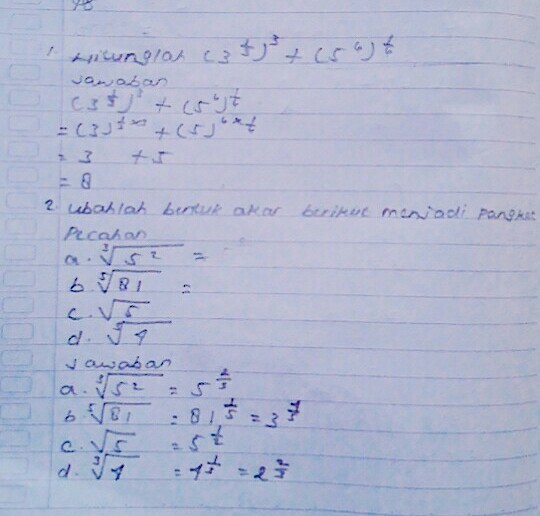 1. Hitunglah (3^{1/3})^3 + (5^6)^{1/6}
Jawaban
(3^{1/3})^3 + (5^6)^{1/6}
= (3)^{1/3 × 3} + (5)^{6 × 1/6}
= 3 + 5
= 8
2. Ubahlah bentuk akar berikut menjadi pangkat
Pecahan
a. ∛5² =
b. ⁵√81 =
c. √5
d. ∛4
Jawaban
a. ∛5² = 5^{2/3}
b. ⁵√81 = 81^{1/5} = 3^{4/5}
c. √5 = 5^{1/2}
d. ∛4 = 4^{1/3} = 2^{2/3}